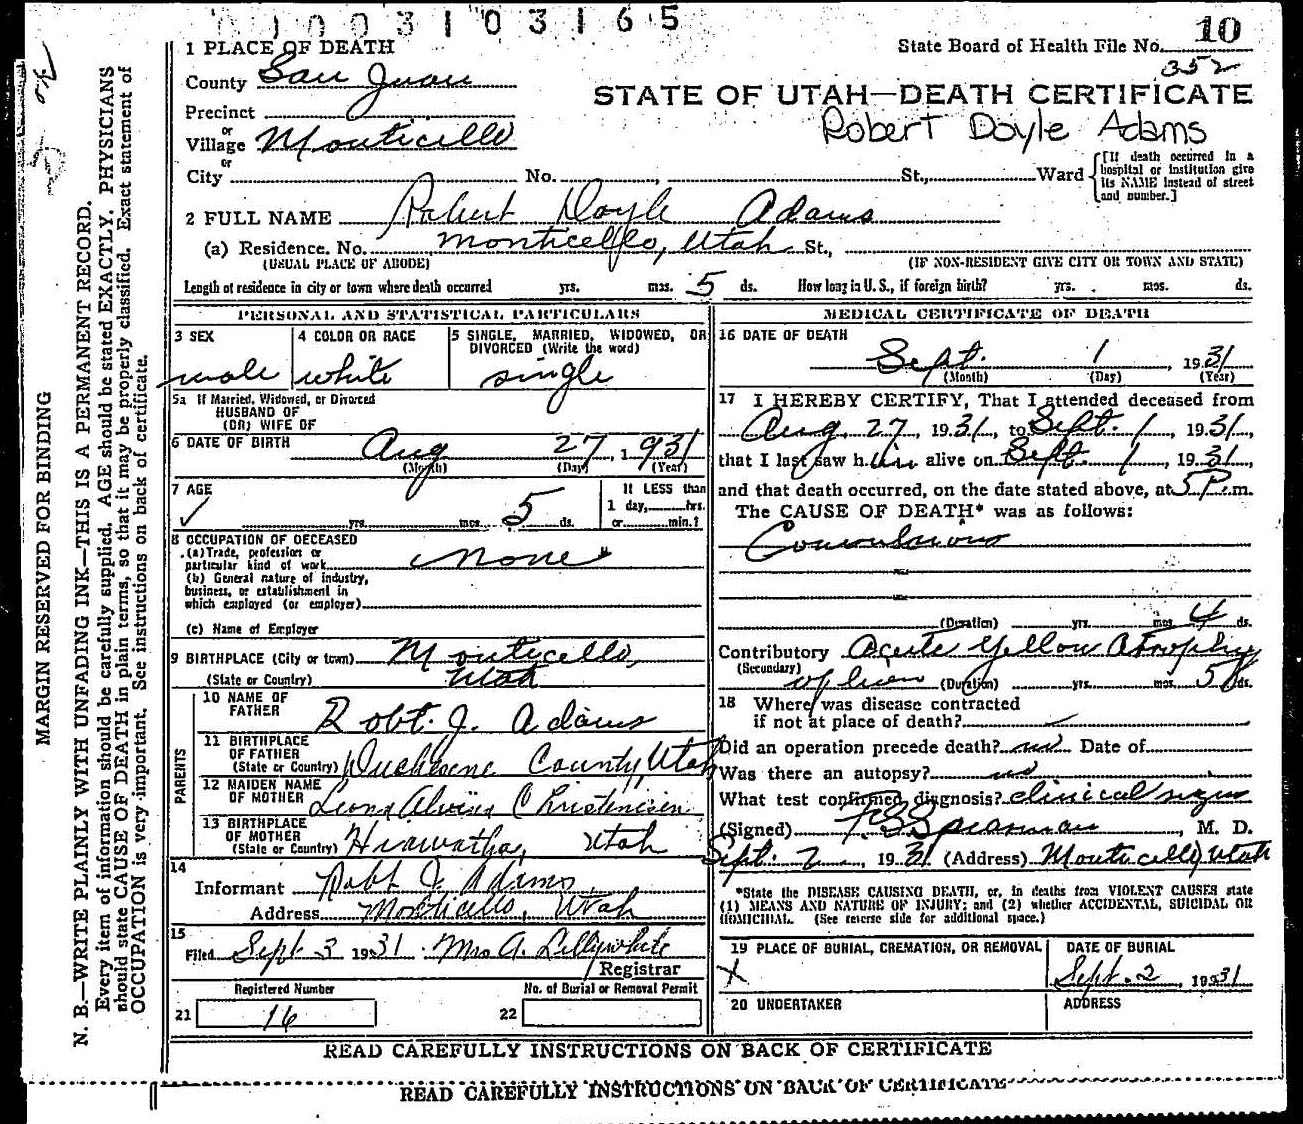 01003103165
10
1 PLACE OF DEATH
State Board of Health File No.
352
County San Juan
STATE OF UTAH—DEATH CERTIFICATE
Precinct
Robert Doyle Adams
or
Village Monticello
or
City No. , St., Ward
[If death occurred in a hospital or institution give its NAME instead of street and number.]
2 FULL NAME Robert Doyle Adams
(a) Residence. No. Monticello, Utah St.,
(USUAL PLACE OF ABODE) (IF NON-RESIDENT GIVE CITY OR TOWN AND STATE)
Length of residence in city or town where death occurred yrs. mos. 5 ds. How long in U. S., if foreign birth? yrs. mos. ds.
PERSONAL AND STATISTICAL PARTICULARS
3 SEX
male
4 COLOR OR RACE
white
5 SINGLE, MARRIED, WIDOWED, OR DIVORCED (Write the word)
single
5a If Married, Widowed, or Divorced
HUSBAND OF
(OR) WIFE OF
6 DATE OF BIRTH Aug 27, 1931
(Month) (Day) (Year)
7 AGE
yrs. mos. 5 ds.
If LESS than
1 day, hrs.
or min.?
8 OCCUPATION OF DECEASED
(a) Trade, profession or
particular kind of work none
(b) General nature of industry,
business, or establishment in
which employed (or employer)
(c) Name of Employer
9 BIRTHPLACE (City or town) Monticello,
(State or Country) Utah
PARENTS
10 NAME OF
FATHER Robt. J. Adams
11 BIRTHPLACE
OF FATHER
(State or Country) Duchesne County, Utah
12 MAIDEN NAME
OF MOTHER Leona Alvina Christensen
13 BIRTHPLACE
OF MOTHER
(State or Country) Hiawatha, Utah
14
Informant Robt J. Adams
Address Monticello, Utah
15
Filed Sept 3 1931 Mrs A. Lillywhite
Registrar
Registered Number No. of Burial or Removal Permit
21 16 22
MEDICAL CERTIFICATE OF DEATH
16 DATE OF DEATH
Sept. 1, 1931
(Month) (Day) (Year)
17 I HEREBY CERTIFY, That I attended deceased from
Aug. 27, 1931, to Sept. 1, 1931,
that I last saw him alive on Sept. 1, 1931,
and that death occurred, on the date stated above, at 5 P.m.
The CAUSE OF DEATH* was as follows:
Convulsions
(Duration) yrs. mos. 4 ds.
Contributory Acute Yellow Atrophy
(Secondary) of liver (Duration) yrs. mos. 5 ds.
18 Where was disease contracted
if not at place of death?
Did an operation precede death? no Date of
Was there an autopsy? no
What test confirmed diagnosis? clinical signs
(Signed) Spearman, M. D.
Sept. 2, 1931 (Address) Monticello, Utah
*State the DISEASE CAUSING DEATH, or, in deaths from VIOLENT CAUSES state
(1) MEANS AND NATURE OF INJURY; and (2) whether ACCIDENTAL, SUICIDAL OR
HOMICIDAL. (See reverse side for additional space.)
19 PLACE OF BURIAL, CREMATION, OR REMOVAL
X
DATE OF BURIAL
Sept. 2, 1931
20 UNDERTAKER
ADDRESS
READ CAREFULLY INSTRUCTIONS ON BACK OF CERTIFICATE
READ CAREFULLY INSTRUCTIONS ON BACK OF CERTIFICATE
MARGIN RESERVED FOR BINDING
N. B.—WRITE PLAINLY WITH UNFADING INK—THIS IS A PERMANENT RECORD.
Every item of information should be carefully supplied. AGE should be stated EXACTLY. PHYSICIANS
should state CAUSE OF DEATH in plain terms, so that it may be properly classified. Exact statement of
OCCUPATION is very important. See instructions on back of certificate.